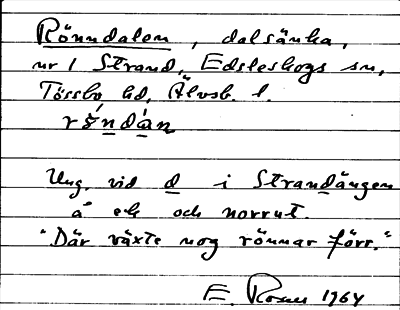 Rönndalen, dalsänka,
nr 1 Strand, Edsleskogs sn,
Tössbo hd, Älvsb. l.
rö́ndàn
Ung. vid d i Strandängen
å ek och norrut.
"Där växte nog rönnar förr."
E. Rosen 1964